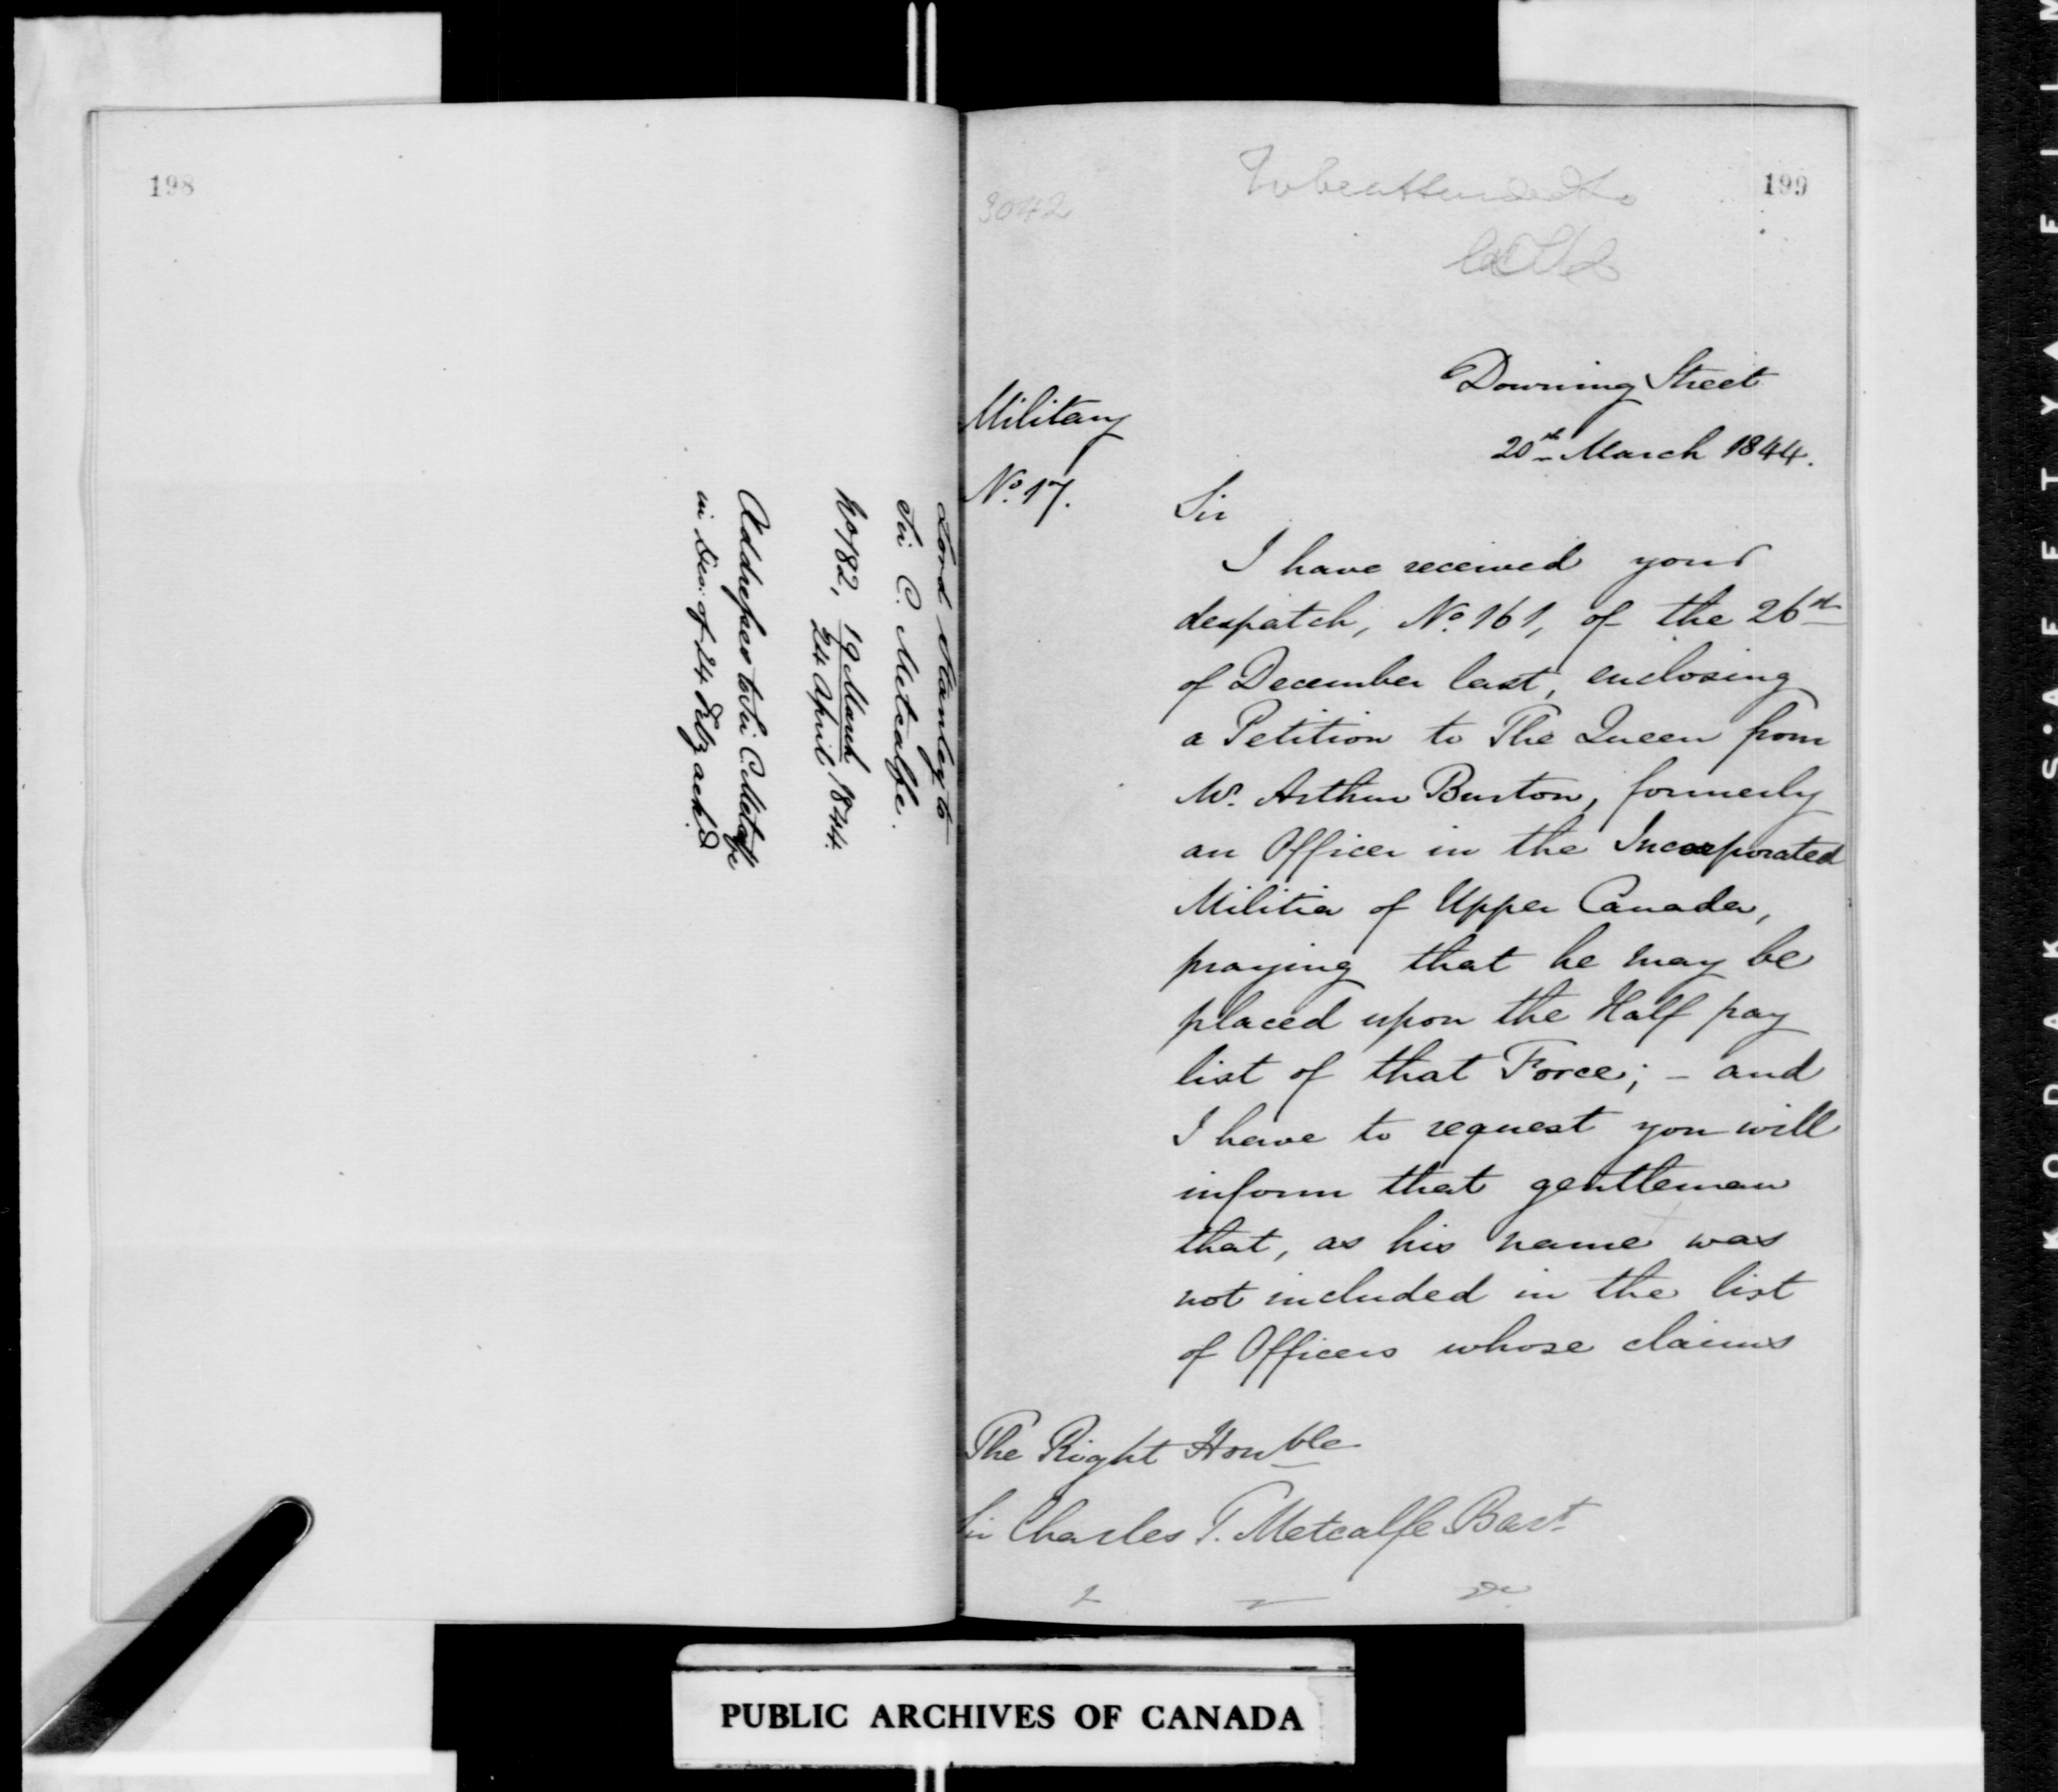 198
Lord Stanley to
Sir C. Metcalfe.
No 182, 19 March 1844.
24 April
Addresses to Sir C. Metcalfe
in Des: of 24 Feby ackd
199
3042
To be attended to
Downing Street
20th March 1844.
Military
No. 17.
Sir
I have received your
despatch, No. 161, of the 26th
of December last, enclosing
a Petition to The Queen from
Mr. Arthur Burton, formerly
an Officer in the Incorporated
Militia of Upper Canada,
praying that he may be
placed upon the Half pay
list of that Force; – and
I have to request you will
inform that gentleman
that, as his name was
not included in the list
of Officers whose claims
The Right Honble
Sir Charles T. Metcalfe Bart
PUBLIC ARCHIVES OF CANADA
KODAK SAFETY FILM